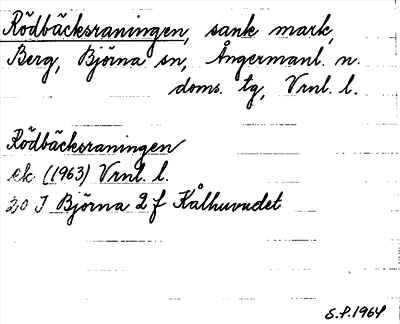 Rödbäcksraningen, sank mark,
Berg, Björna sn, Ångermanl. n.
doms. tg, Vrnl. l.
Rödbäcksraningen
ek. (1963) Vrnl. l.
20 J Björna 2 f Kålhuvudet
S.P. 1964